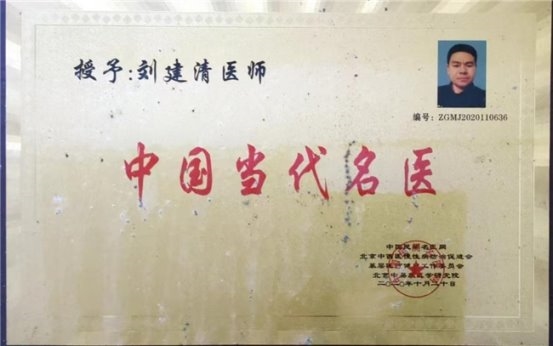 授予:刘建清医师
编号：ZGMJ2020110636
中国当代名医
中国民间名医网
北京中西医慢性病防治促进会
基层医疗健康工作委员会
二〇二〇年十月二十日